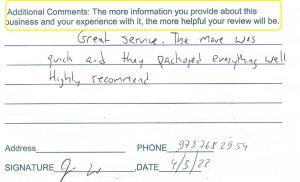 Additional Comments: The more information you provide about this
business and your experience with it, the more helpful your review will be.
Great service. The move was
quick and they packaged everything well
Highly recommend
Address PHONE 973 768 2954
SIGNATURE DATE 4/3/22